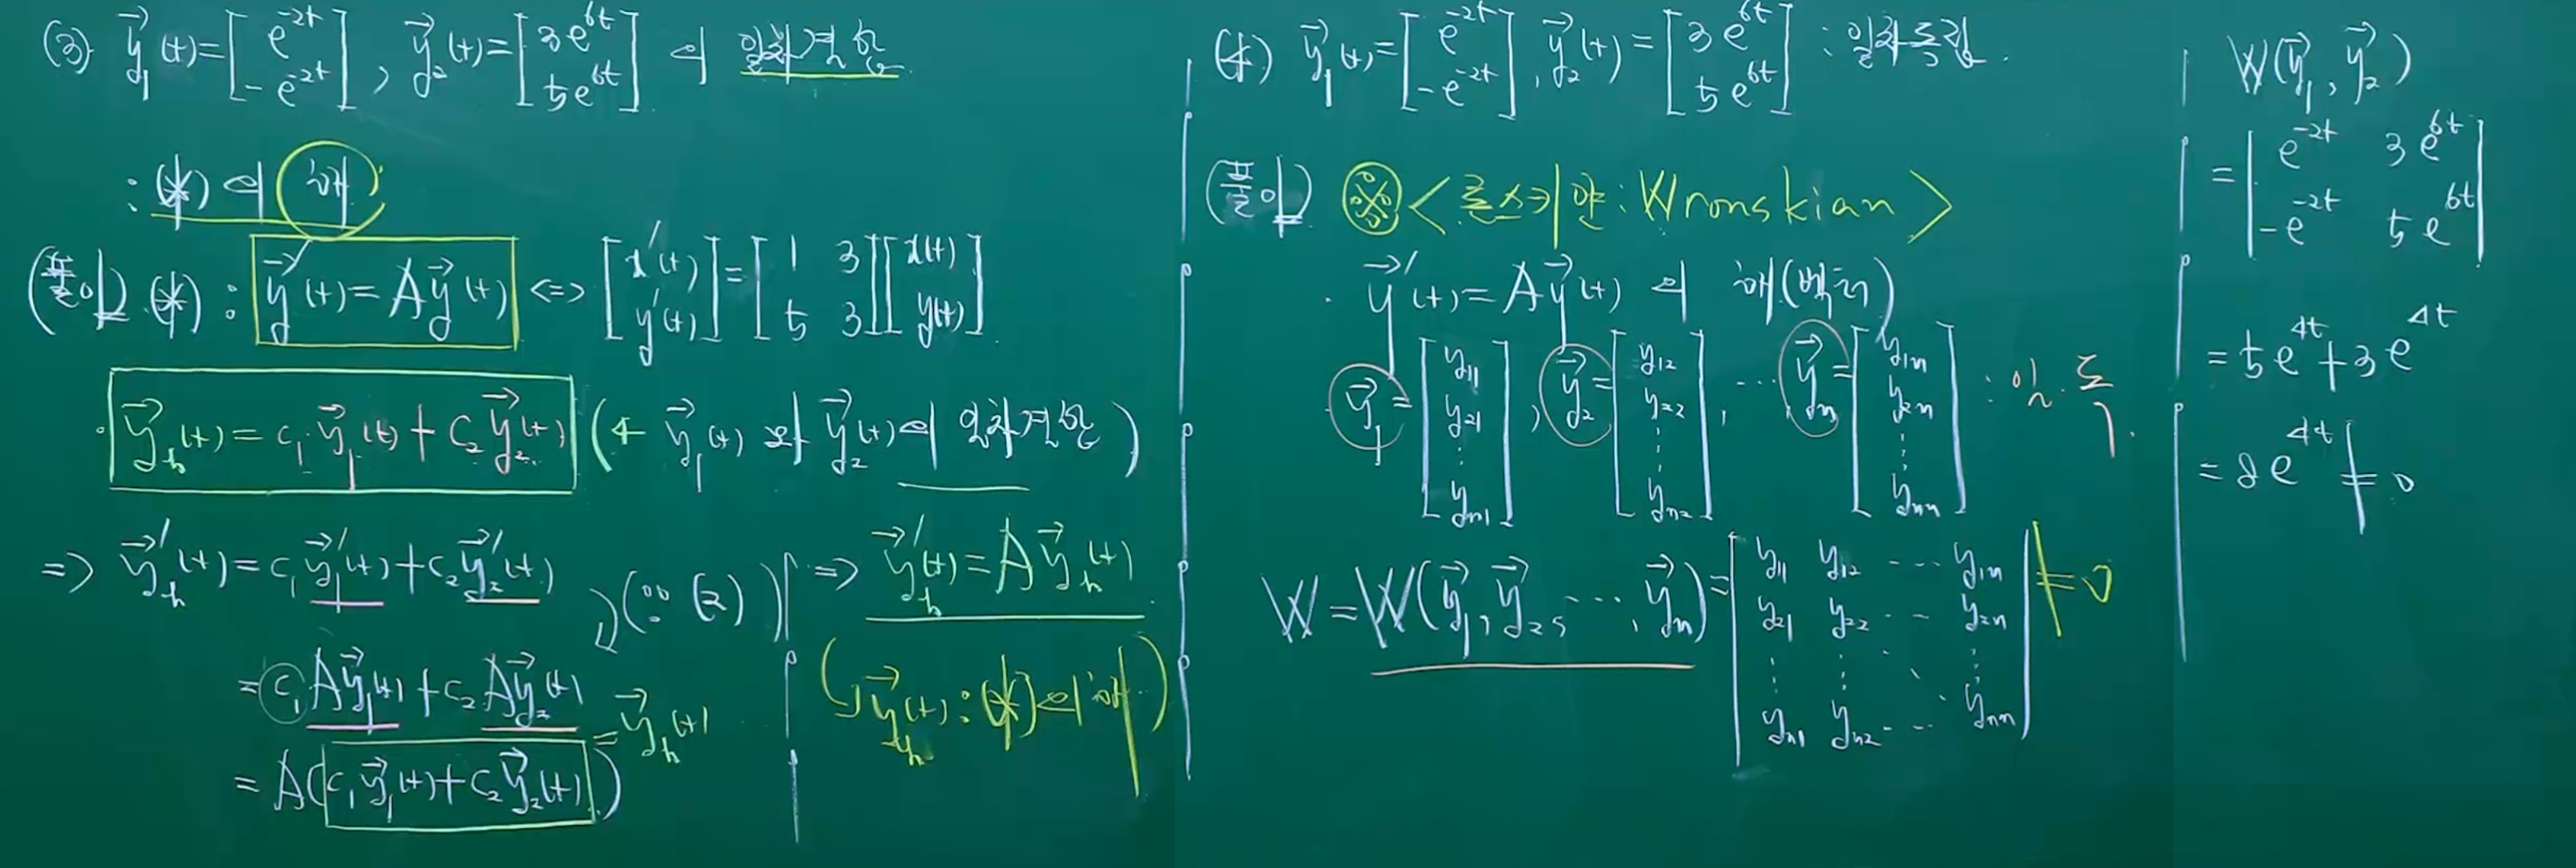 (3) y⃗₁(t)=[e^{-2t}; -e^{-2t}], y⃗₂(t)=[3e^{6t}; 5e^{6t}] 의 일차결합
: (*)의 해
(풀이) (*) : y⃗'(t)=Ay⃗(t) <=> [x'(t); y'(t)]=[1 3; 5 3][x(t); y(t)]
· y⃗ₕ(t)=c₁y⃗₁(t)+c₂y⃗₂(t) (← y⃗₁(t) 와 y⃗₂(t)의 일차결합)
=> y⃗ₕ'(t)=c₁y⃗₁'(t)+c₂y⃗₂'(t)
=c₁Ay⃗₁(t)+c₂Ay⃗₂(t) (∵ (2))
=A(c₁y⃗₁(t)+c₂y⃗₂(t)) =y⃗ₕ(t)
=> y⃗ₕ'(t)=Ay⃗ₕ(t)
(y⃗ₕ(t) : (*)의 해)
(4) y⃗₁(t)=[e^{-2t}; -e^{-2t}], y⃗₂(t)=[3e^{6t}; 5e^{6t}] : 일차독립.
(풀이) ※ <론스키안 : Wronskian>
· y⃗'(t)=Ay⃗(t) 의 해(벡터)
y⃗₁=[y₁₁; y₂₁; ⋮; yₙ₁], y⃗₂=[y₁₂; y₂₂; ⋮; yₙ₂], ⋯ y⃗ₙ=[y₁ₙ; y₂ₙ; ⋮; yₙₙ] : 일.독.
W=W(y⃗₁, y⃗₂, ⋯, y⃗ₙ)=|y₁₁ y₁₂ ⋯ y₁ₙ; y₂₁ y₂₂ ⋯ y₂ₙ; ⋮ ⋮ ⋱ ⋮; yₙ₁ yₙ₂ ⋯ yₙₙ| ≠0
W(y⃗₁, y⃗₂)
=|e^{-2t} 3e^{6t}; -e^{-2t} 5e^{6t}|
=5e^{4t}+3e^{4t}
=8e^{4t}≠0